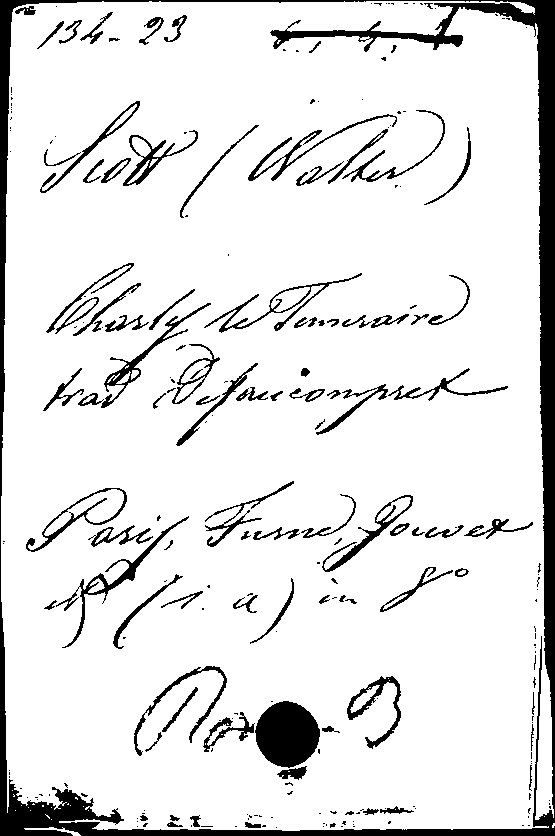 134-23
Scott (Walter)
Charles le Temeraire
trad Defaucompret
Paris, Furne, Jouvet
et (s. a) in 8°
B